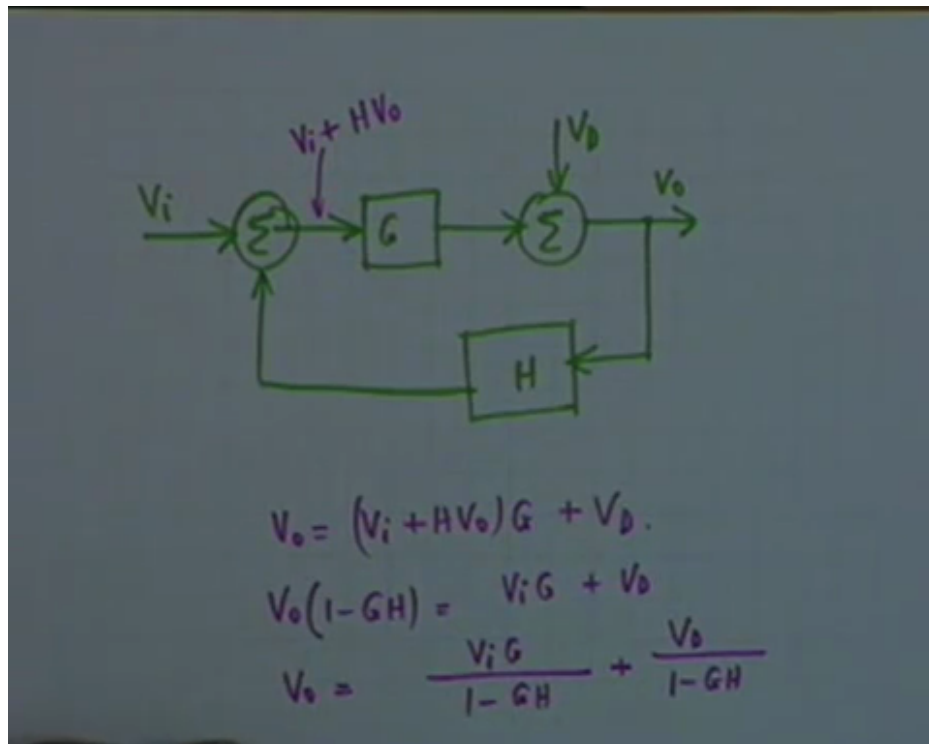 Vi + HVo
VD
Vi
Σ
G
Σ
Vo
H
Vo = (Vi + HVo)G + VD.
Vo(1-GH) = ViG + VD
Vo = ViG / 1-GH + VD / 1-GH